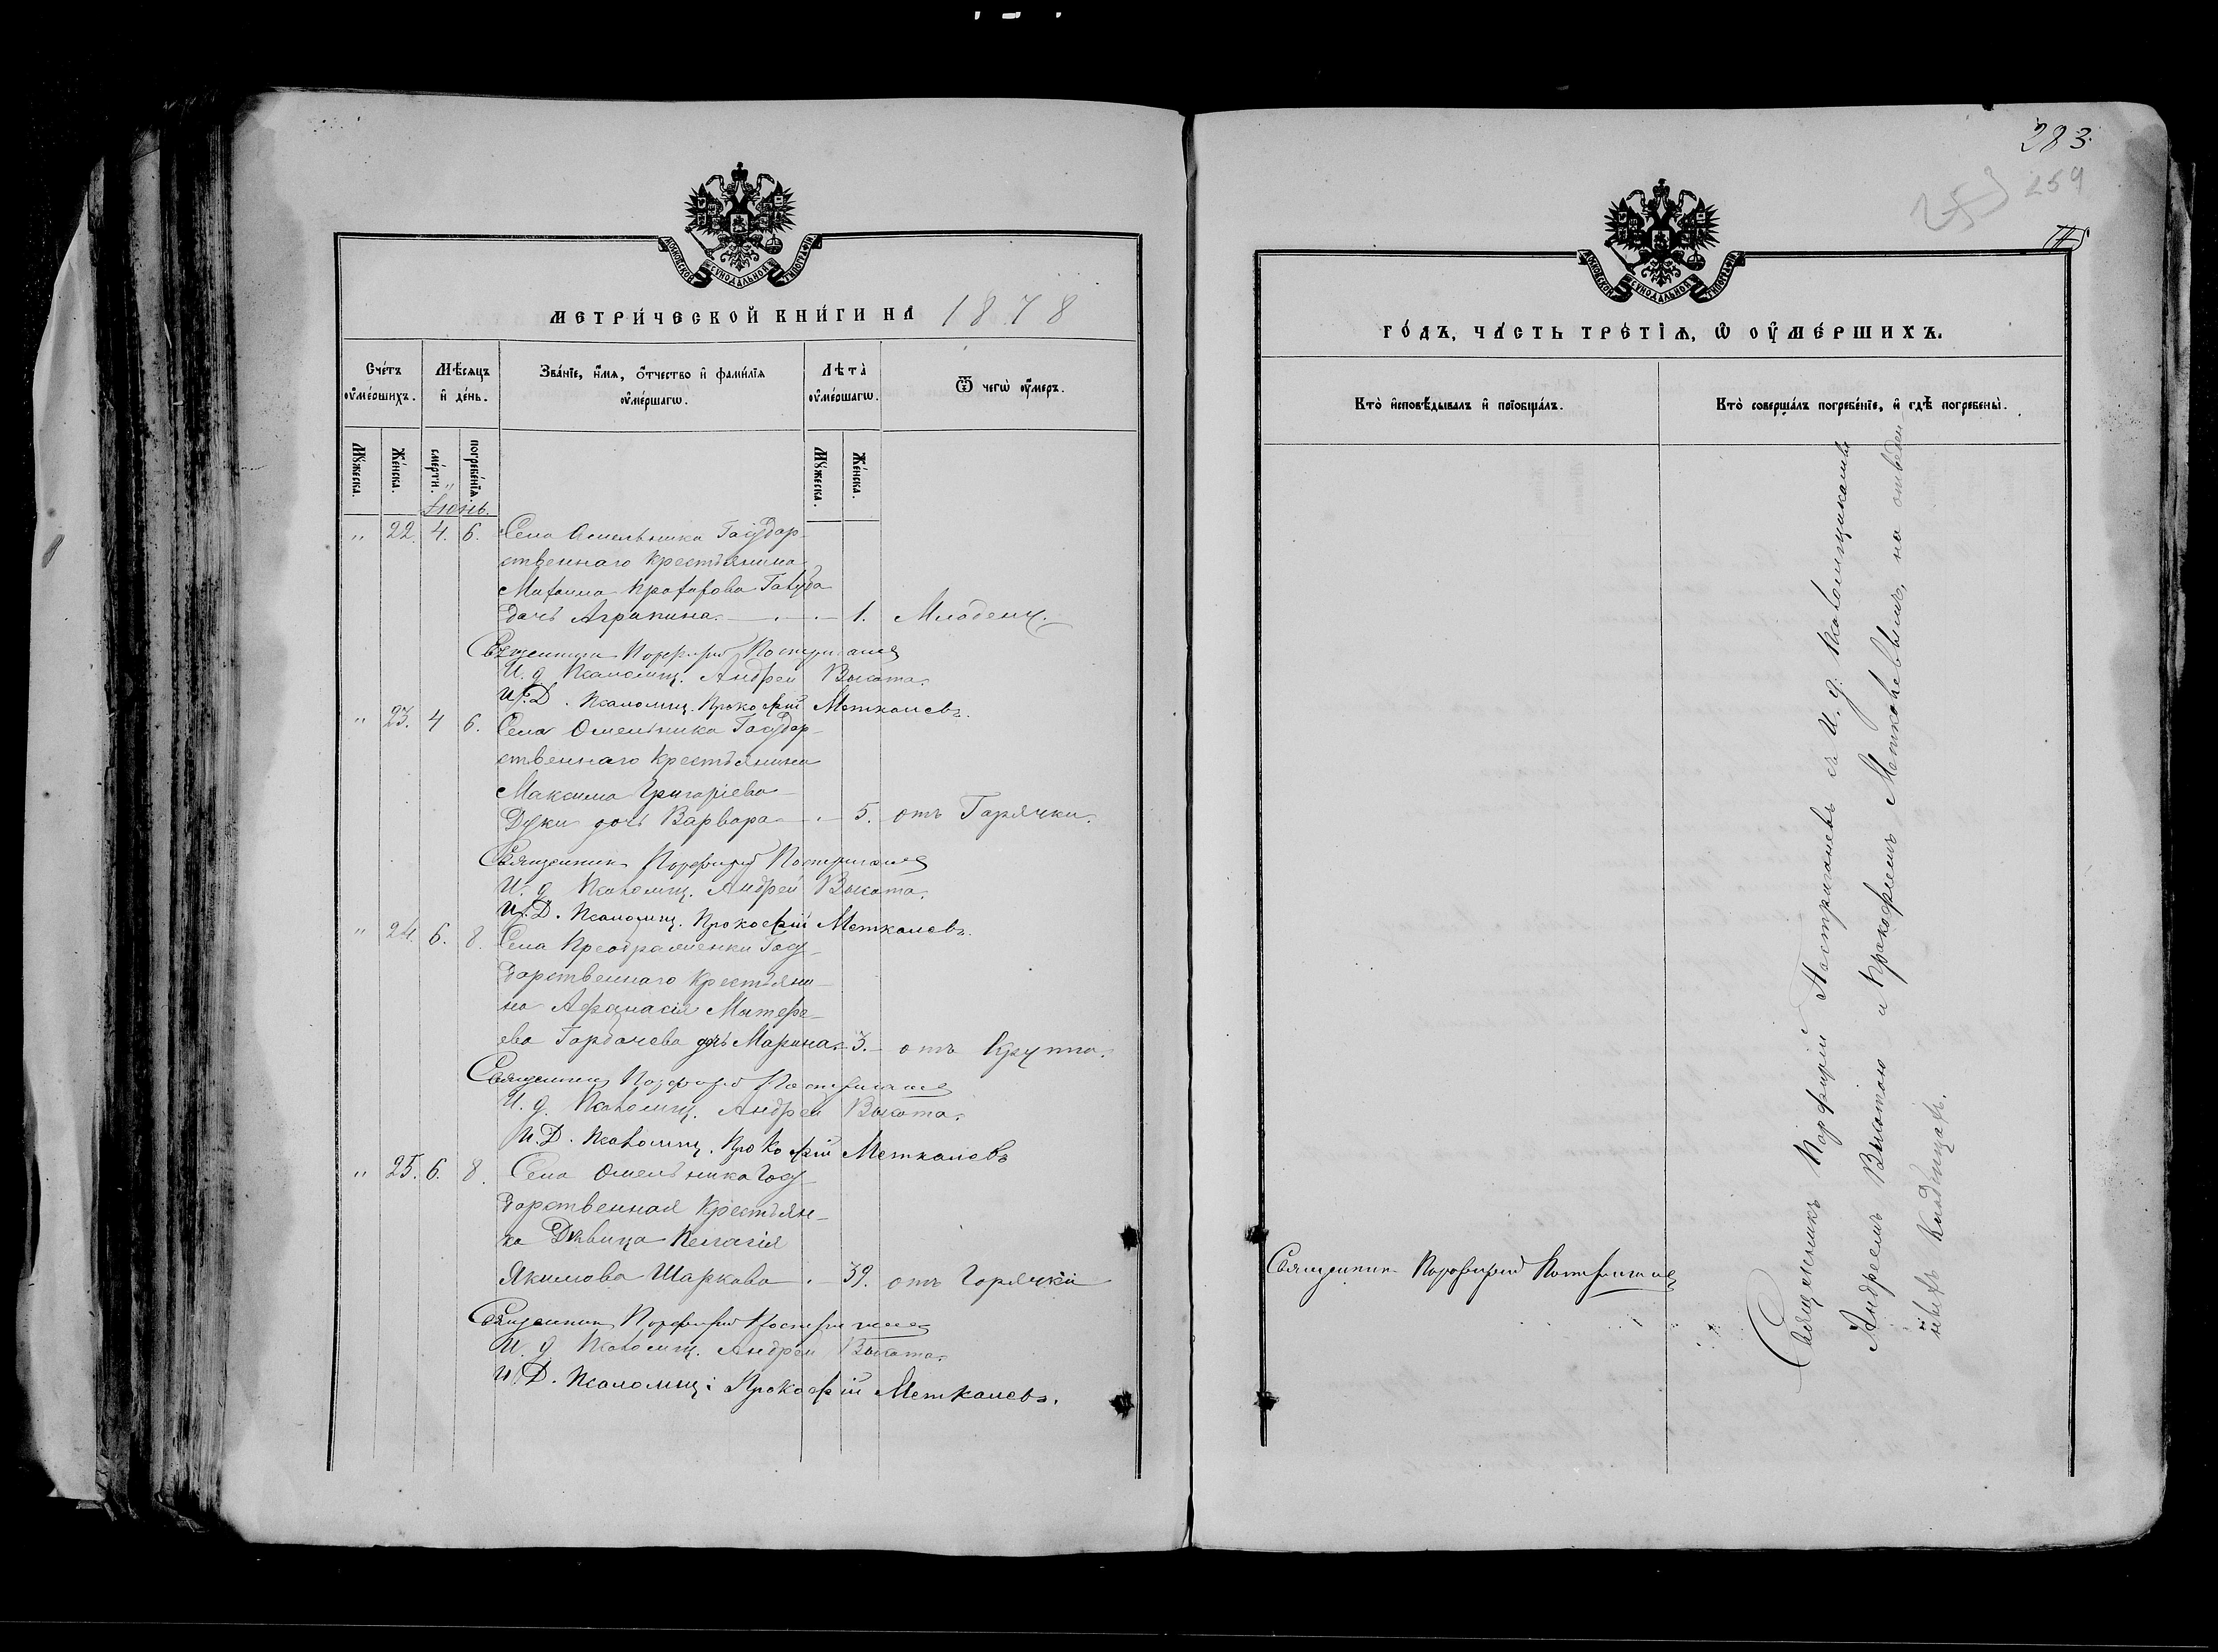 283.
259
МОСКОВСКОЙ СѴНОДАЛЬНОЙ ТИПОГРАФІИ
МЕТРИ́ЧЕСКОЙ КНИ́ГИ НА 1878
Сче́тъ оумéршихъ.
Мѣ́сяцъ и де́нь.
Зва́нїе, и́мя, о́тчество и фами́лїя оуме́ршагѡ.
Лѣ́та оуме́ршагѡ.
Ѿ чегѡ̀ оу́меръ.
Мꙋ́жеска.
Же́нска.
сме́рти.
погребе́нїѧ.
Мꙋ́жеска.
Же́нска.
Іюнь.
" 22. 4. 6. Села Омельника Государ-
ственнаго Крестьянина
Михаила
дочь Агрипина. 1. Младенч.
Священникъ Порфирій Постригачев
И. д. Псаломщ. Андрей Высота.
И. Д. Псаломщ. Прокофій Меткалевъ.
" 23. 4 6. Села Омельника Государ-
ственнаго Крестьянина
Максима Григоріева
Дуки дочь Варвара 5. отъ Горячки.
Священникъ Порфирій Постригачев
И. д. Псаломщ. Андрей Высота.
И. Д. Псаломщ. Прокофій Меткалевъ.
" 24. 6. 8. Села Преображенки Госу-
дарственнаго Крестьяни-
на Афанасія Матфе-
ева Горбачева дочь Марина. 3. отъ Крупа.
Священникъ Порфирій Постригачев
И. д. Псаломщ. Андрей Высота.
И. Д. Псаломщ. Прокофій Меткалевъ
" 25. 6. 8. Села Омельника Госу-
дарственная Крестьян-
ка Дѣвица Пелагія
Якимова Шаркова 39. отъ Горячки
Священникъ Порфирій Постригачев
И. д. Псаломщ. Андрей Высота.
И. Д. Псаломщ. Прокофій Меткалевъ.
МОСКОВСКОЙ СѴНОДАЛЬНОЙ ТИПОГРАФІИ
ГО́ДЪ, ЧА́СТЬ ТРЕ́ТІѦ, Ѡ ОУМЕ́РШИХЪ.
Кто̀ и҆сповѣ́дывалъ и҆ прїобща́лъ.
Кто̀ соверша́лъ погребе́нїе, и҆ гдѣ̀ погребены̀.
Священникъ Порфирій Постригачев
Священникъ Порфирій Постригачевъ съ И. д. Псаломщиками
Андреемъ Высотою и Прокофіемъ Меткалевымъ, на отведен-
ныхъ Кладбищахъ.